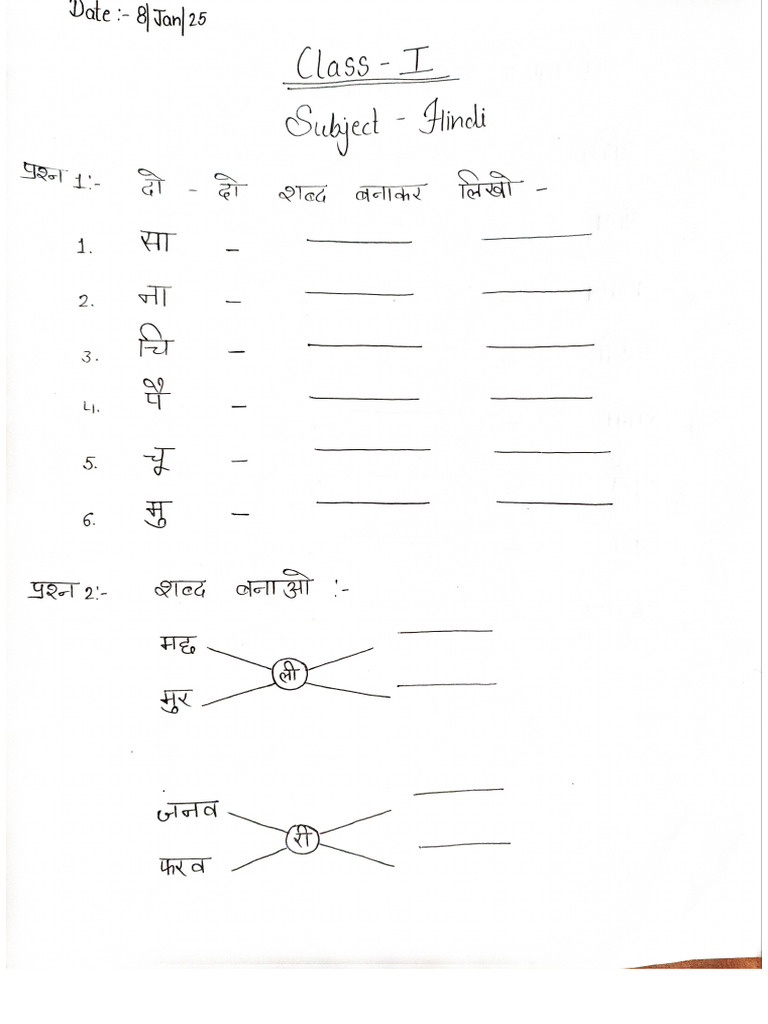 Date :- 8|Jan|25
Class - I
Subject - Hindi
प्रश्न 1:- दो - दो शब्द बनाकर लिखो -
1. सा -
2. ना -
3. चि -
4. पै -
5. चू -
6. मु -
प्रश्न 2:- शब्द बनाओ :-
मछ
ली
मुर
जनव
री
फरव